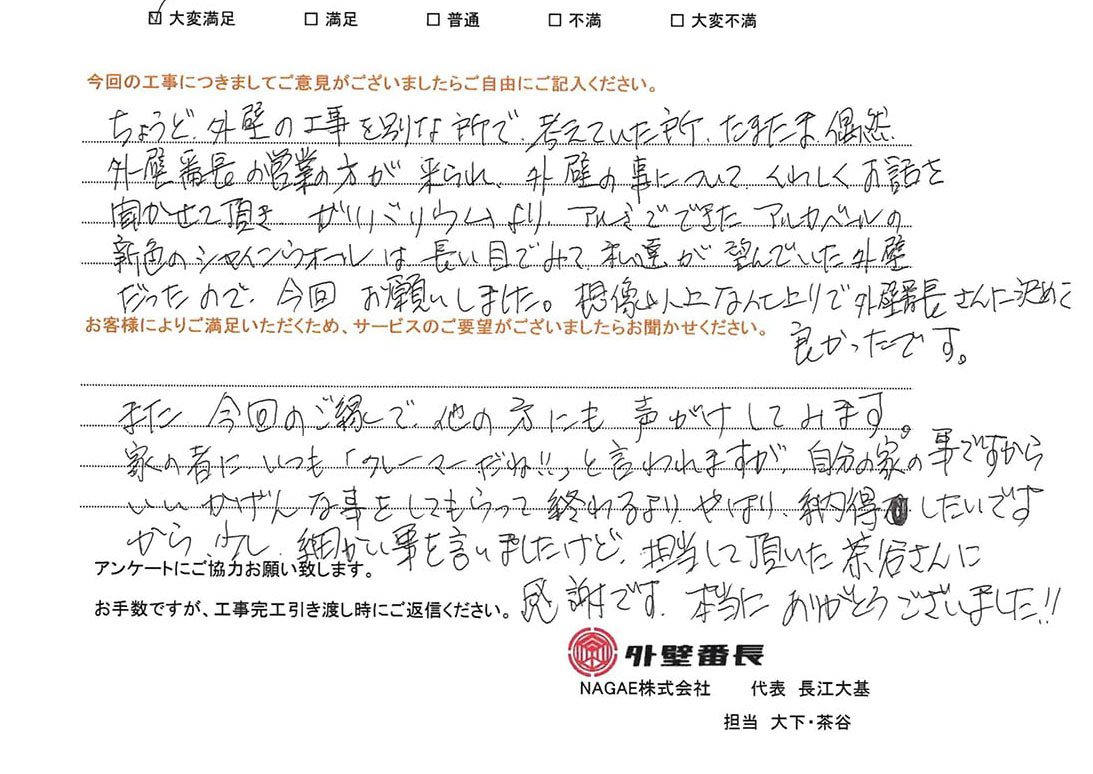 ☑ 大変満足 □ 満足 □ 普通 □ 不満 □ 大変不満
今回の工事につきましてご意見がございましたらご自由にご記入ください。
ちょうど、外壁の工事を別な所で、考えていた所、たまたま、偶然
外壁番長の営業の方が来られ、外壁の事について、くわしくお話を
聞かせて頂き、ガリバリウムより、アルミでできたアルカベールの
新色のシャインウォールは長い目でみて私達が望んでいた外壁
だったので、今回お願いしました。想像以上な仕上りで外壁番長さんに決めて
良かったです。
お客様によりご満足いただくため、サービスのご要望がございましたらお聞かせください。
また、今回のご縁で、他の方にも声がけしてみます。
家の者にいつも「クレーマーだね!!」と言われますが、自分の家の事ですから
いいかげんな事をしてもらって終わるより、やはり、納得したいです
から、少し、細かい事を言いましたけど、担当して頂いた茶谷さんに
感謝です。本当にありがとうございました!!
アンケートにご協力お願い致します。
お手数ですが、工事完工引き渡し時にご返信ください。
外壁番長
NAGAE株式会社 代表 長江大基
担当 大下・茶谷